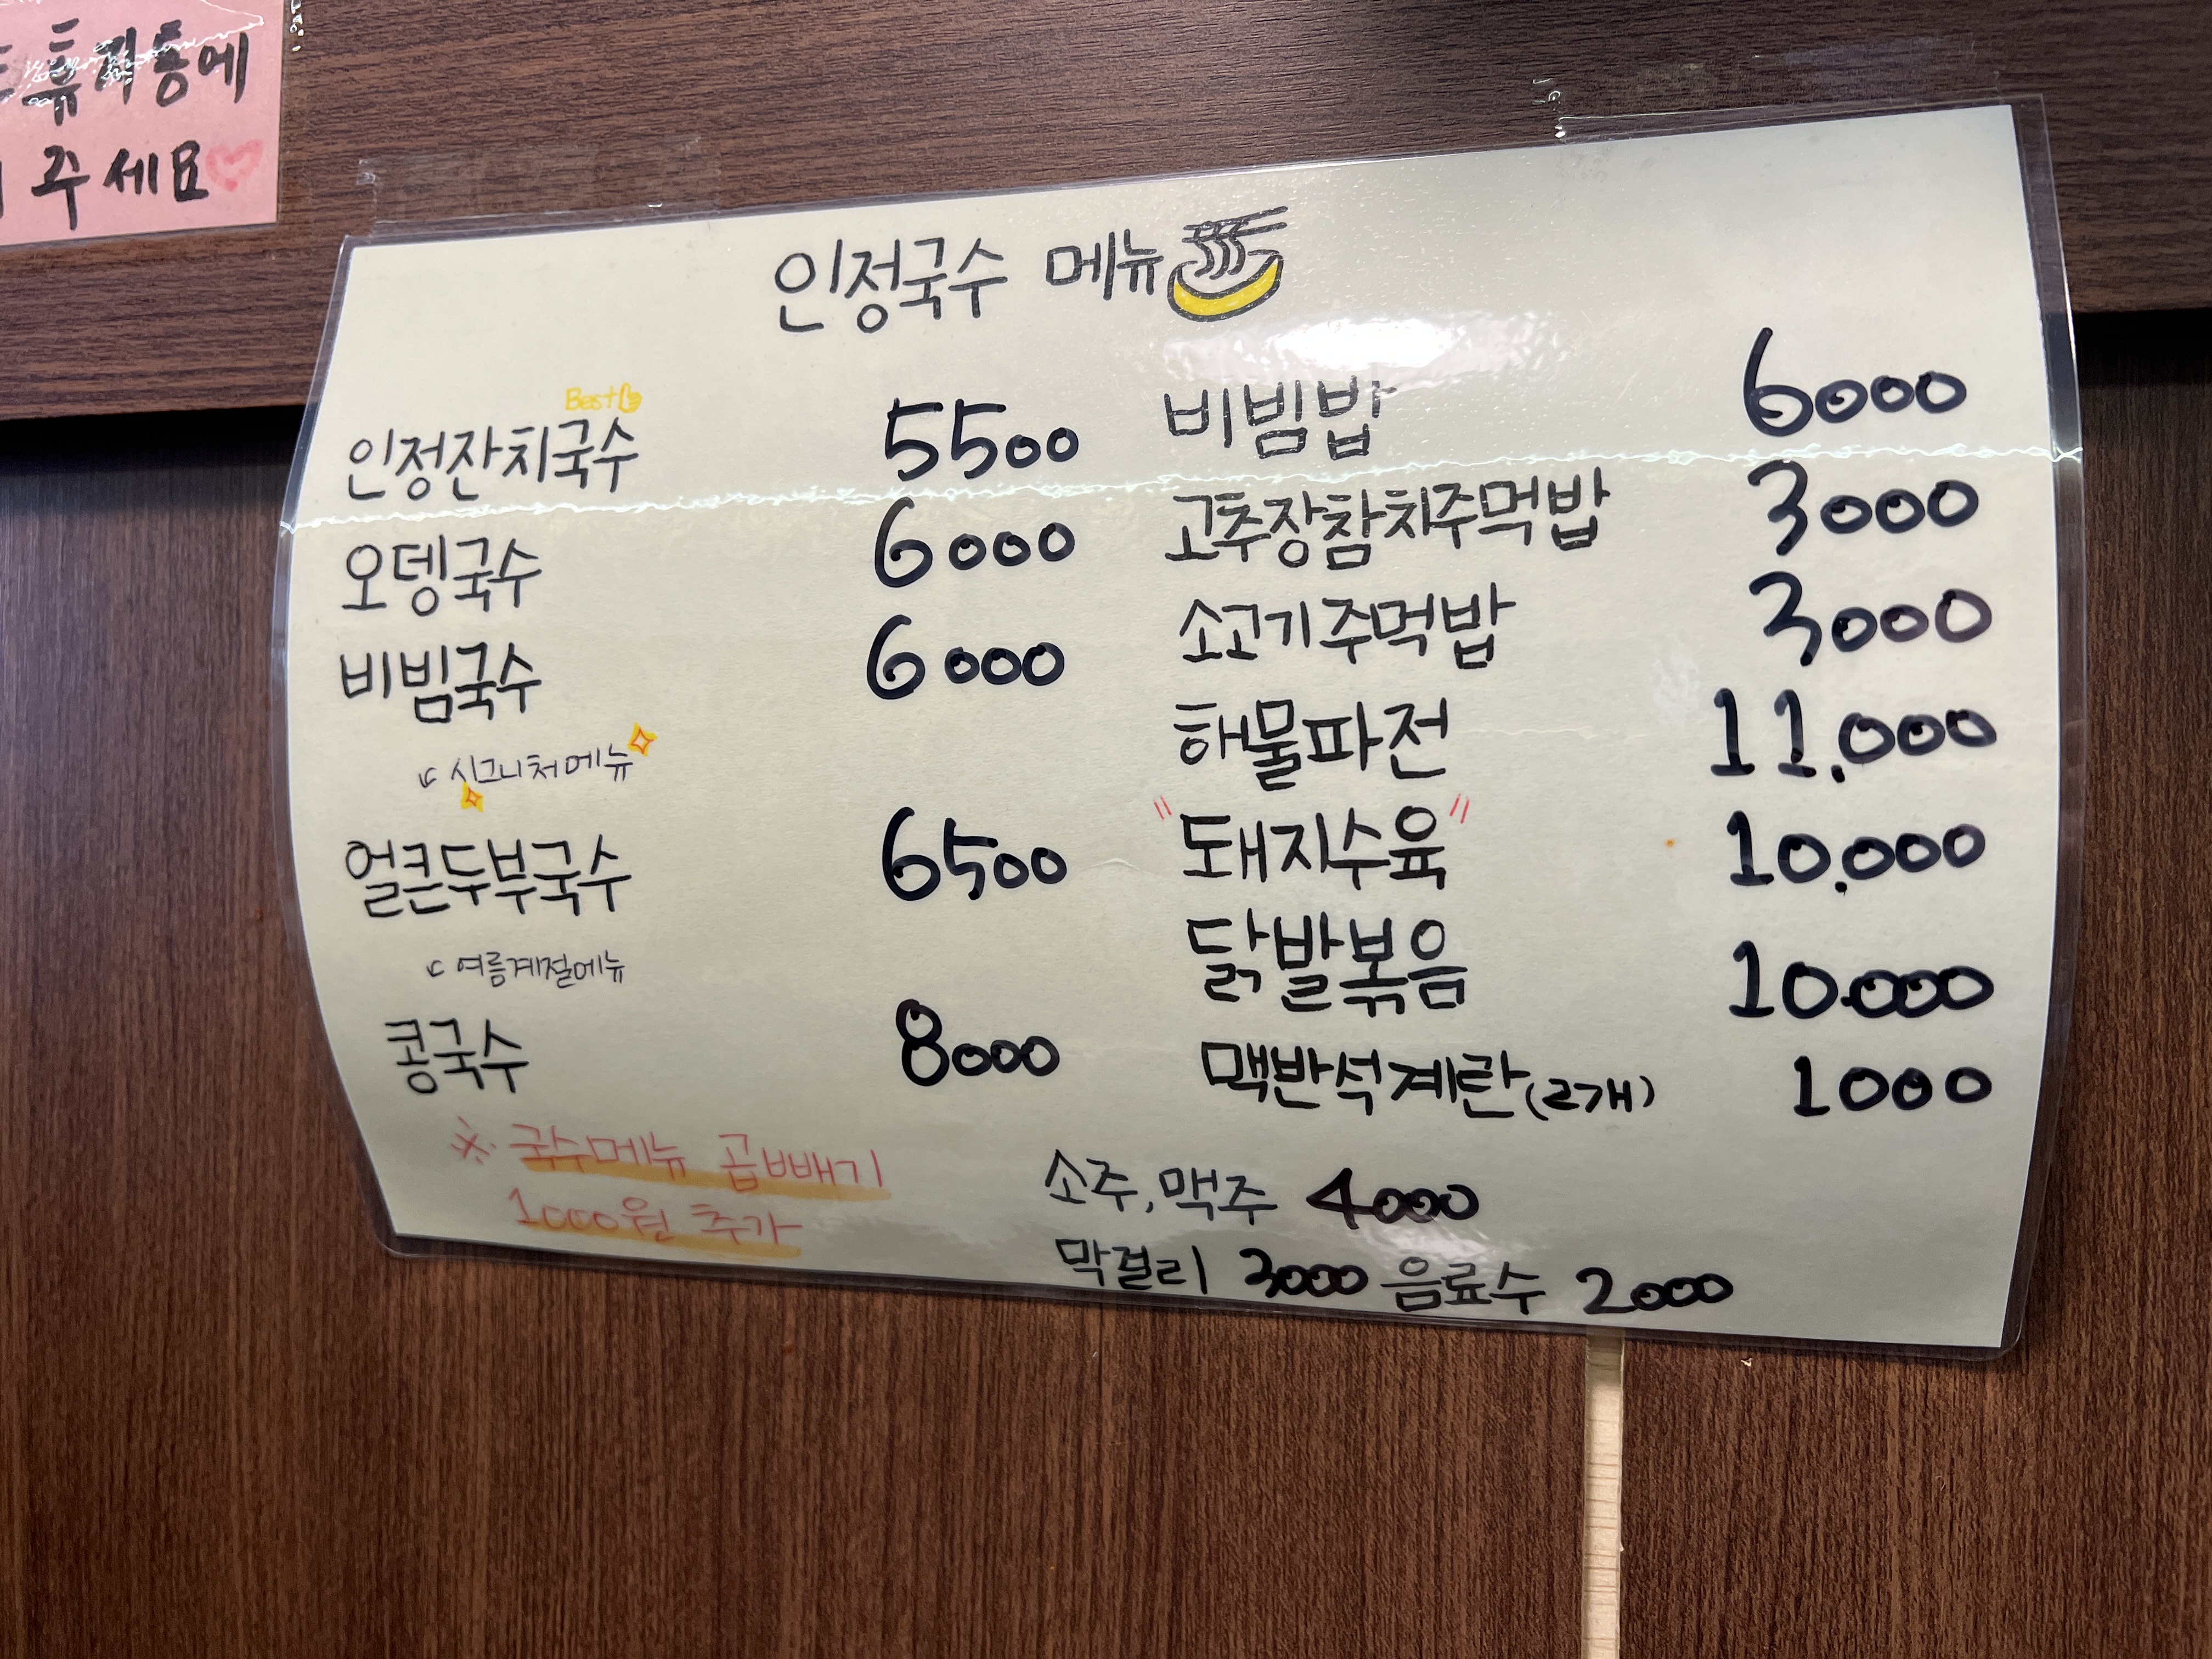 휴지통에
주세요♡
인정국수 메뉴
Best
인정잔치국수 5500
오뎅국수 6000
비빔국수 6000
시그니처메뉴
얼큰두부국수 6500
여름계절메뉴
콩국수 8000
※ 국수메뉴 곱빼기
1000원 추가
비빔밥 6000
고추장참치주먹밥 3000
소고기주먹밥 3000
해물파전 11.000
"돼지수육" 10.000
닭발볶음 10.000
맥반석계란(2개) 1000
소주,맥주 4000
막걸리 3000 음료수 2000